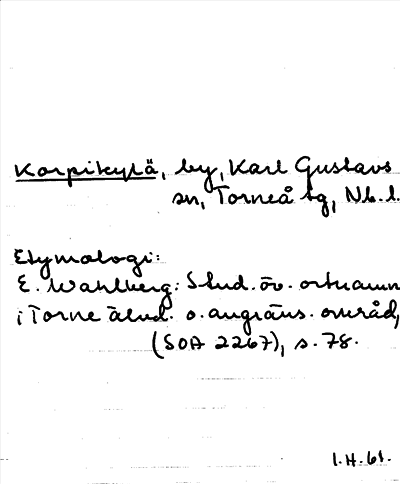 Korpikylä, by, Karl Gustavs
sn, Torneå tg, Nb. l.
Etymologi:
E. Wahlberg: Stud. öv. ortnamn
i Torne älvd. o. angräns. områd,
(SOA 2267), s. 78.
1.H.61.